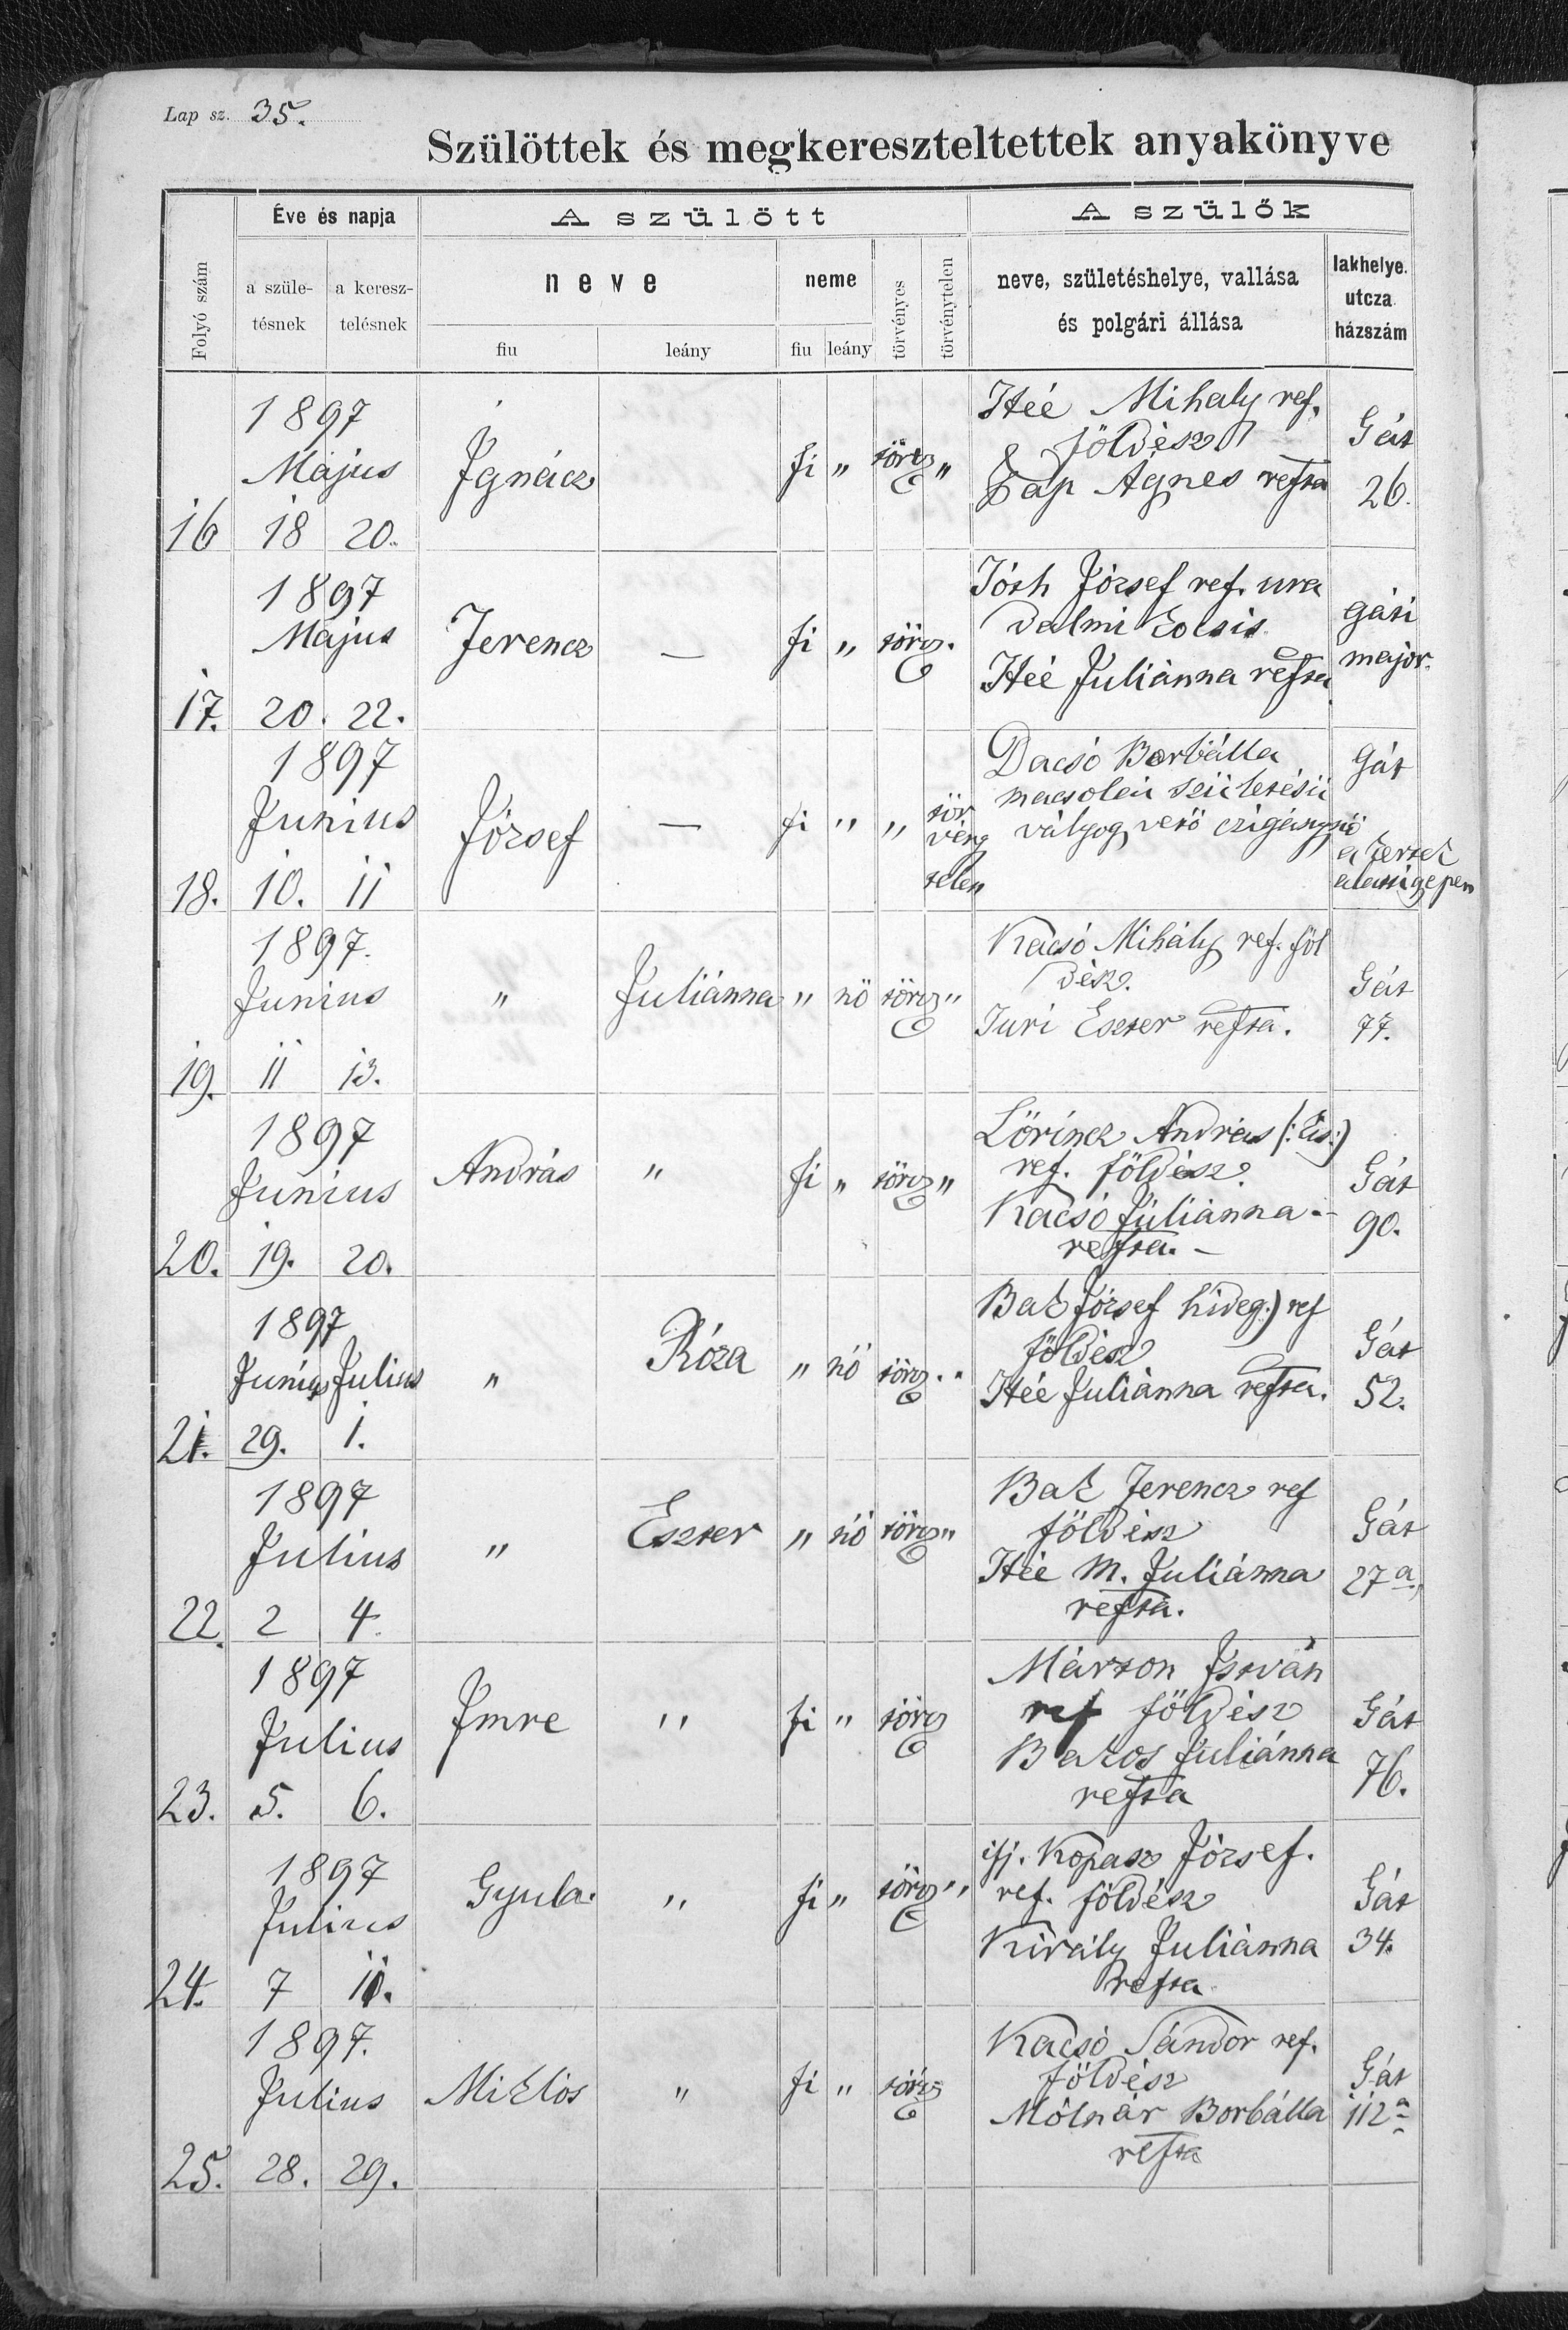 Lap sz. 35.
Szülöttek és megkereszteltettek anyakönyve
Folyó szám
Éve és napja
a születésnek
a keresztelésnek
A szülött
neve
fiu
leány
neme
fiu leány
törvényes
törvénytelen
A szülők
neve, születéshelye, vallása
és polgári állása
lakhelye.
utcza
házszám
1897
Május
16 18 20.
Ignácz
fi " törv "
Itéé Mihaly ref.
földész
Pap Ágnes refta
Gát
26.
1897
Május
17. 20. 22.
Ferencz —
fi " törv.
Tóth József ref. ura
dalmi kocsis
Itéé Juliánna refta
Gáti
major.
1897
Junius
18. 10. 11
József —
fi " "
tör
vény
telen
Dacsó Borbálla
macsolai születésü
vályog vető czigánynő
Gát
1897.
Junius
19. 11 13.
" Juliánna " nö törv "
Kacsó Mihály ref. föl
dész.
Turi Eszter refta.
Gát
77.
1897
Junius
20. 19. 20.
András "
fi " törv "
Lörincz András (: kis :)
ref. földész
Kacsó Juliánna -
refta. -
Gát
90.
1897
Junius Julius
21. 29. 1.
" Róza " nó törv. "
Bak József hideg:) ref
földész
Itéé Juliánna refta.
Gát
52.
1897
Julius
22. 2 4.
" Eszter " nó törv "
Bak Ferencz ref
földész
Itéé M. Juliánna
refta.
Gát
27 a,
1897
Julius
23. 5. 6.
Imre " fi " törv
Márton István
ref földész
Bakos Juliánna
refta
Gát
76.
1897
Julius
24. 7 11.
Gyula. " fi " törv "
ifj. Kopasz József.
ref. földész
Király Juliánna
refta
Gát
34.
1897.
Julius
25. 28. 29.
Miklós " fi " törv
Kacsó Sándor ref.
földész
Mólnár Borbálla
refta
Gát
112 a